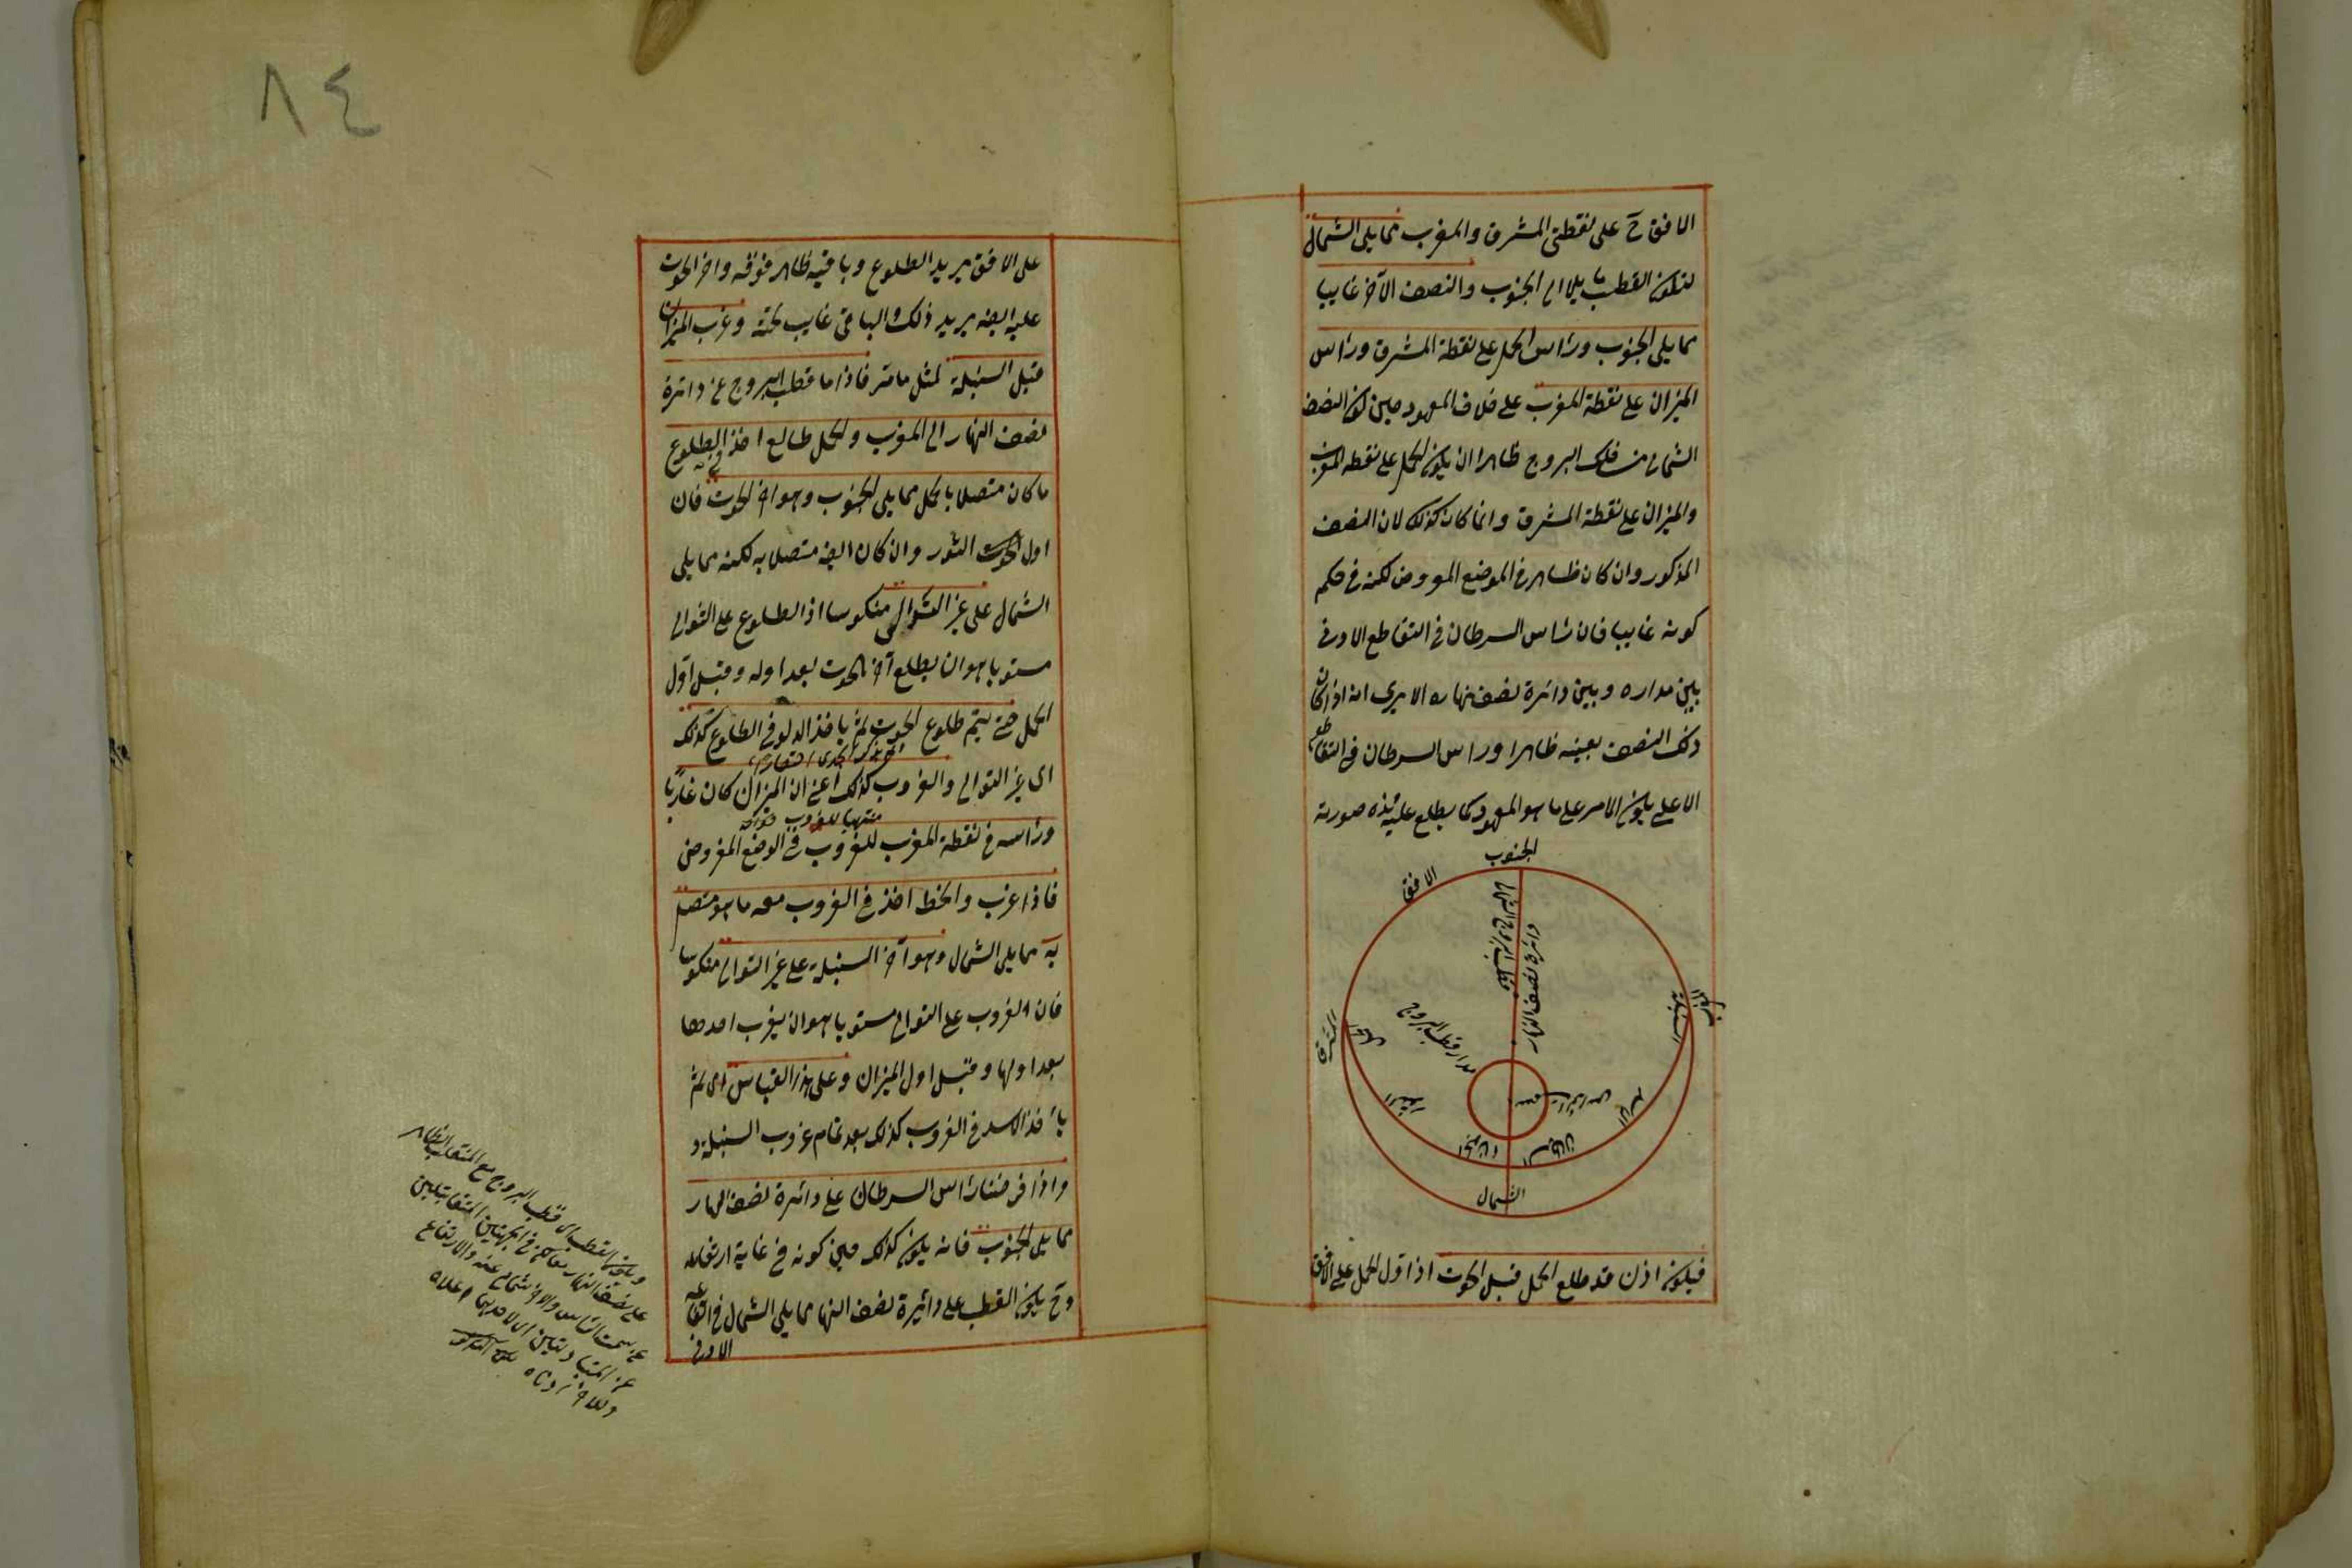 الافق ح على نقطتى المشرق والمغرب مما يلى الشمال
لتكون القطب مايلا الى الجنوب والنصف الآخر غايبا
مما يلى الجنوب ورأس الحمل على نقطة المشرق ورأس
الميزان على نقطة المغرب على خلاف المعهود حين كون النصف
الشمالى من فلك البروج ظاهرا ان يكون الحمل على نقطه المغرب
والميزان على نقطة المشرق وانما كان كذلك لان النصف
المذكور وان كان ظاهرا فى الموضع المفروض لكنه فى حكم
كونه غايبا فان رأس السرطان فى التقاطع الادنى
بين مداره وبين دائرة نصف نهاره الا يرى انه اذا كان
ذلك النصف بعينه ظاهرا وراس السرطان فى التقاطع
الاعلى يكون الامر على ما هو المعهود كما يطلع عليه هذه صورته
الجنوب
الافق
دائرة نصف النهار
مدار قطب البروج
المشرق
المغرب
الحمل
الثور
الجوزاء
السرطان
الاسد
السنبلة
الشمال
فيكون اذن قد طلع الحمل قبل الحوت اذ اول الحمل على الافق
٨٤
على الافق يريد الطلوع وباقيه ظاهر فوقه واخر الحوت
عليه ايضه يريد ذلك والباقى غايب تحته وغرب الميزان
قبل السنبلة لمثل ما مر فاذا ما قطب البروج عن دائرة
نصف النهار الى المغرب والحمل طالع اخذ فى الطلوع
ما كان متصلا بالحمل مما يلى الجنوب وهو آخر الحوت فان
اول الحوت الثور وان كان ايضه متصلا به لكنه مما يلى
الشمال على غير التوالى منكوسا اذ الطلوع على التوالى
مستويا هو ان يطلع آخر الحوت بعد اوله وقبل اول
الحمل حتى يتم طلوع الحوت ثم ياخذ الدلو فى الطلوع كذلك
اى غير التوالى والغروب كذلك اعنى ان الميزان كان غاربا
ورأسه فى نقطة المغرب للغروب فى الوضع المفروض
فاذا غرب وانحط اخذ فى الغروب معه ما هو متصل
به مما يلى الشمال وهو آخر السنبلة على غير التوالى منكوسا
فان الغروب على التوالى مستويا هو ان يغرب احدها
بعد اولها وقبل اول الميزان وعلى هذا القياس اى ثم
يأخذ الاسد فى الغروب كذلك بعد تمام غروب السنبلة و
واذا فرضنا رأس السرطان على دائرة نصف النهار
مما يلى الجنوب فانه يكون كذلك حين كونه فى غاية ارتفاعه
وح يكون القطب على دائيرة نصف النهار مما يلى الشمال فى ارتفاعه
الادنى
ويكون القطب اى قطب البروج مع المنقلب
على نصف النهار فى الجهتين المتقابلتين